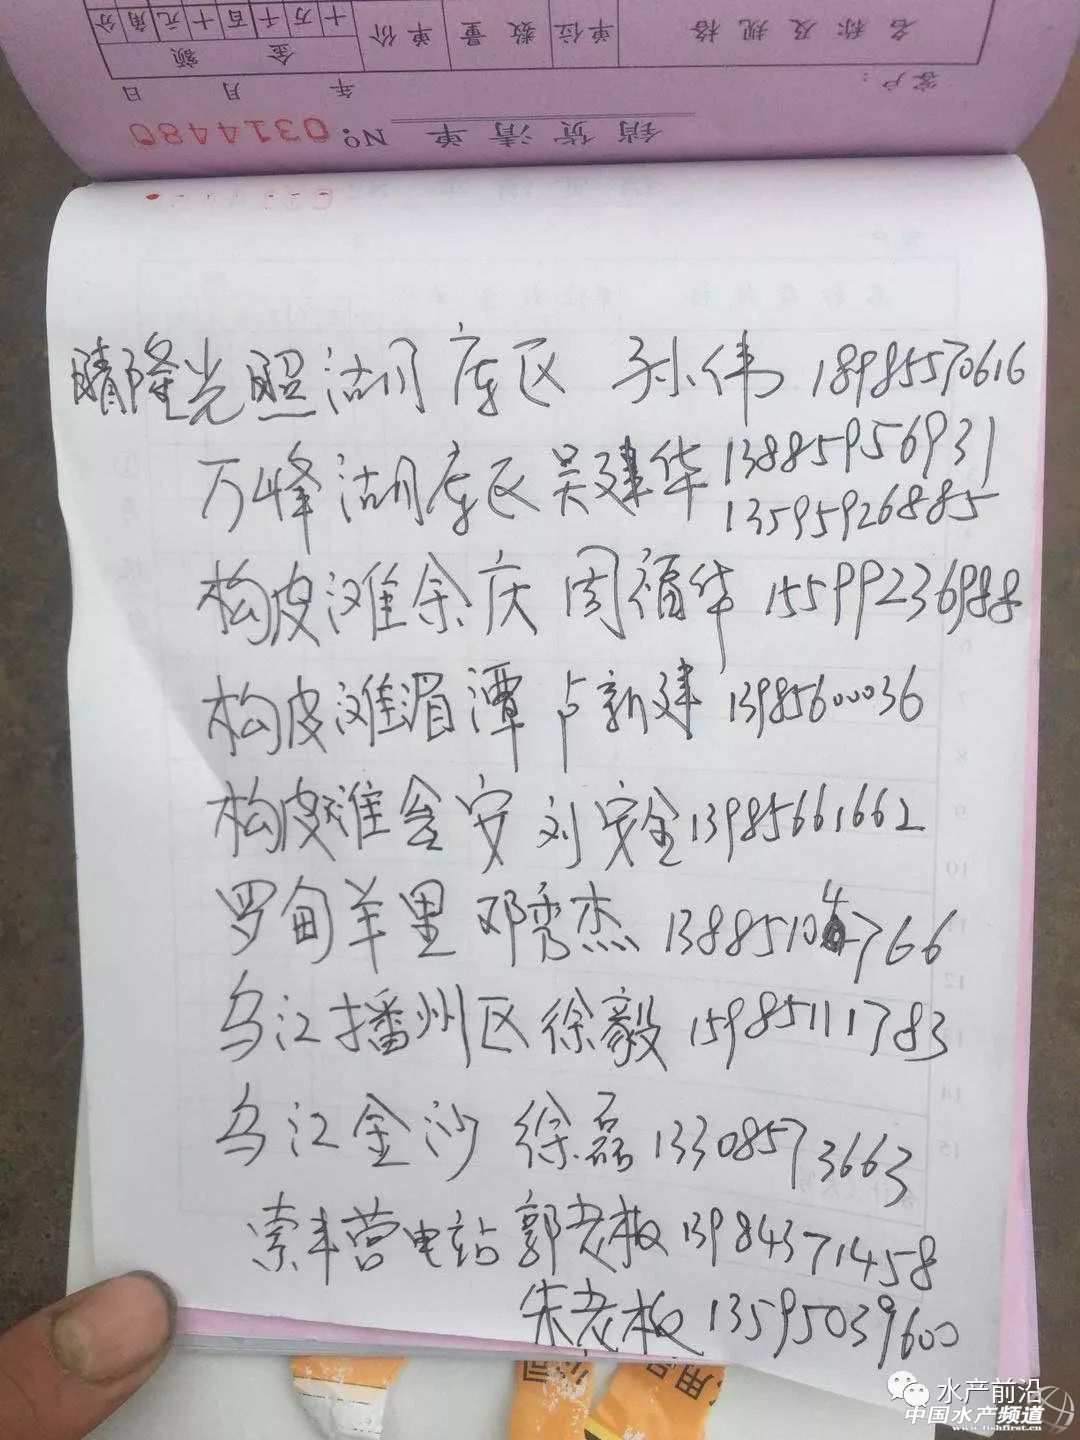 名称及规格 单位 数量 单价 金额 十万千百十元角分
客户： 年 月 日
销货清单 No 0314480
晴隆光照湖库区 孙伟 18985570616
万峰湖库区 吴建华 13885956931
13595926885
构皮滩余庆 周福华 15599236988
构皮滩湄潭 卢新建 13985600036
构皮滩瓮安 刘安全 13985661662
罗甸羊里 邓秀杰 13885104766
乌江播州区 徐毅 15985111783
乌江金沙 徐磊 13308573663
索丰营电站 郭老板 13984371458
朱老板 13595039600
水产前沿
中国水产频道
www.fishfirst.cn